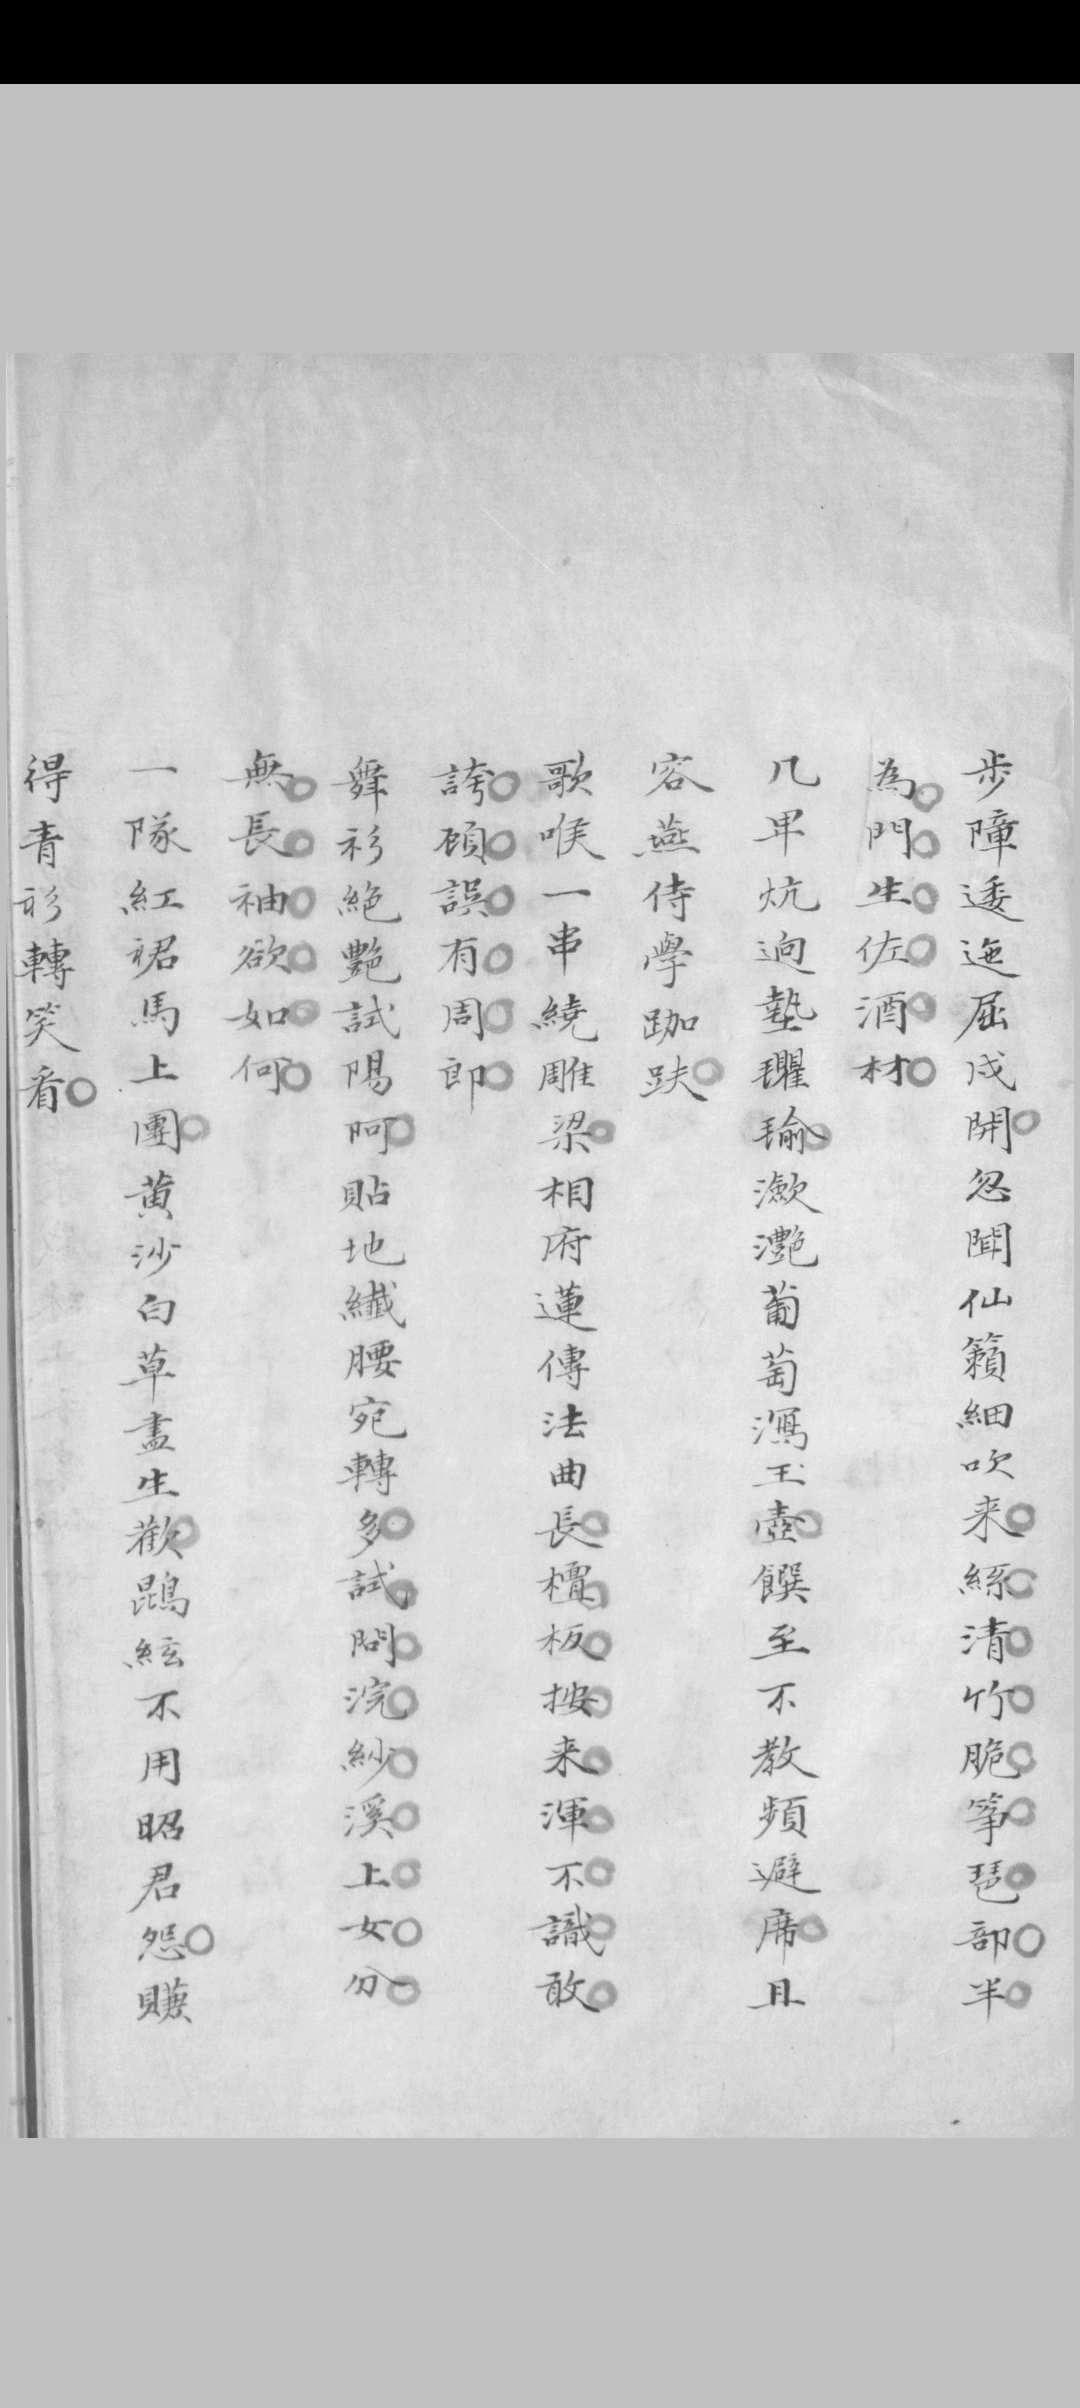 步障逶迤屈戌開忽聞仙籟細吹来絲清竹脆箏琶部半
為門生佐酒材
几畀炕逈墊氍毹瀲灩葡萄瀉玉壺饌至不教頻避席且
容燕侍學跏趺
歌喉一串繞雕梁相府蓮傳法曲長檀板按来渾不識敢
誇顧誤有周郎
舞衫絶艷試陽阿貼地纖腰宛轉多試問浣紗溪上女分
無長袖欲如何
一隊紅裙馬上團黄沙白草盡生歡鵾絃不用昭君怨賺
得青衫轉笑看